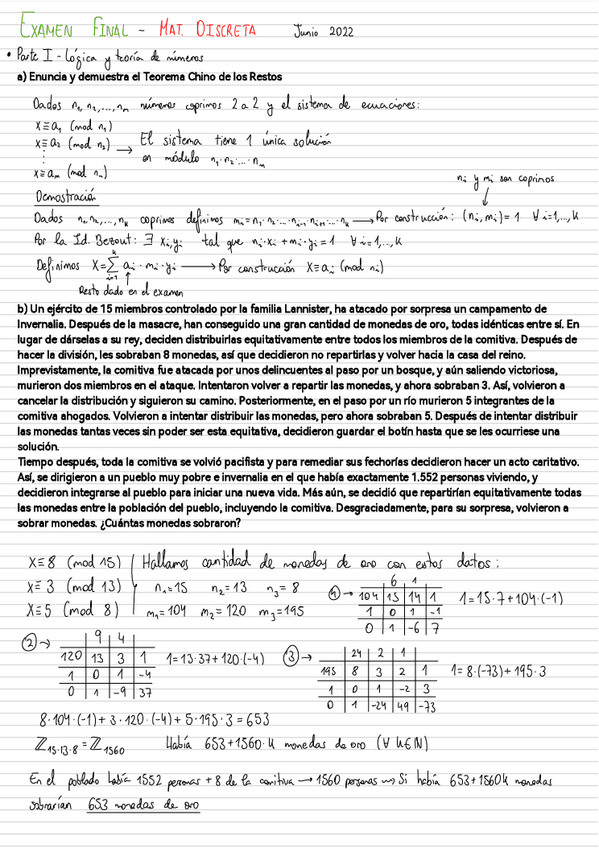 EXAMEN FINAL - MAT. DISCRETA Junio 2022
• Parte I - Lógica y teoría de números
a) Enuncia y demuestra el Teorema Chino de los Restos
Dados n₁, n₂, ..., nₘ números coprimos 2 a 2 y el sistema de ecuaciones:
x ≡ a₁ (mod n₁)
x ≡ a₂ (mod n₂) → El sistema tiene 1 única solución
⋮ en módulo n₁·n₂·...·nₘ
x ≡ aₘ (mod nₘ)
nᵢ y mᵢ son coprimos
Demostración
Dados n₁, n₂, ..., nₖ coprimos definimos mᵢ = n₁·n₂·...·nᵢ₋₁·nᵢ₊₁·...·nₖ → Por construcción: (nᵢ, mᵢ) = 1 ∀ i=1,...,k
Por la Id. Bezout: ∃ xᵢ, yᵢ tal que nᵢ·xᵢ + mᵢ·yᵢ = 1 ∀ i=1,...,k
Definimos X = ∑ᵏᵢ₌₁ aᵢ·mᵢ·yᵢ → Por construcción X ≡ aᵢ (mod nᵢ)
Resto dado en el examen
b) Un ejército de 15 miembros controlado por la familia Lannister, ha atacado por sorpresa un campamento de
Invernalia. Después de la masacre, han conseguido una gran cantidad de monedas de oro, todas idénticas entre sí. En
lugar de dárselas a su rey, deciden distribuirlas equitativamente entre todos los miembros de la comitiva. Después de
hacer la división, les sobraban 8 monedas, así que decidieron no repartirlas y volver hacia la casa del reino.
Imprevistamente, la comitiva fue atacada por unos delincuentes al paso por un bosque, y aún saliendo victoriosa,
murieron dos miembros en el ataque. Intentaron volver a repartir las monedas, y ahora sobraban 3. Así, volvieron a
cancelar la distribución y siguieron su camino. Posteriormente, en el paso por un río murieron 5 integrantes de la
comitiva ahogados. Volvieron a intentar distribuir las monedas, pero ahora sobraban 5. Después de intentar distribuir
las monedas tantas veces sin poder ser esta equitativa, decidieron guardar el botín hasta que se les ocurriese una
solución.
Tiempo después, toda la comitiva se volvió pacifista y para remediar sus fechorías decidieron hacer un acto caritativo.
Así, se dirigieron a un pueblo muy pobre e invernalia en el que había exactamente 1.552 personas viviendo, y
decidieron integrarse al pueblo para iniciar una nueva vida. Más aún, se decidió que repartirían equitativamente todas
las monedas entre la población del pueblo, incluyendo la comitiva. Desgraciadamente, para su sorpresa, volvieron a
sobrar monedas. ¿Cuántas monedas sobraron?
X ≡ 8 (mod 15) Hallamos cantidad de monedas de oro con estos datos:
X ≡ 3 (mod 13) n₁=15 n₂=13 n₃=8
X ≡ 5 (mod 8) m₁=104 m₂=120 m₃=195
① → 6 1
104 15 14 1 1=15·7+104·(-1)
1 0 1 -1
0 1 -6 7
② → 9 4
120 13 3 1 1=13·37+120·(-4)
1 0 1 -4
0 1 -9 37
③ → 24 2 1
195 8 3 2 1 1=8·(-73)+195·3
1 0 1 -2 3
0 1 -24 49 -73
8·104·(-1)+3·120·(-4)+5·195·3=653
ℤ₁₅·₁₃·₈ = ℤ₁₅₆₀ Había 653+1560·k monedas de oro (∀ k∈ℕ)
En el poblado había 1552 personas + 8 de la comitiva → 1560 personas ⇝ Si había 653+1560k monedas
sobrarían 653 monedas de oro